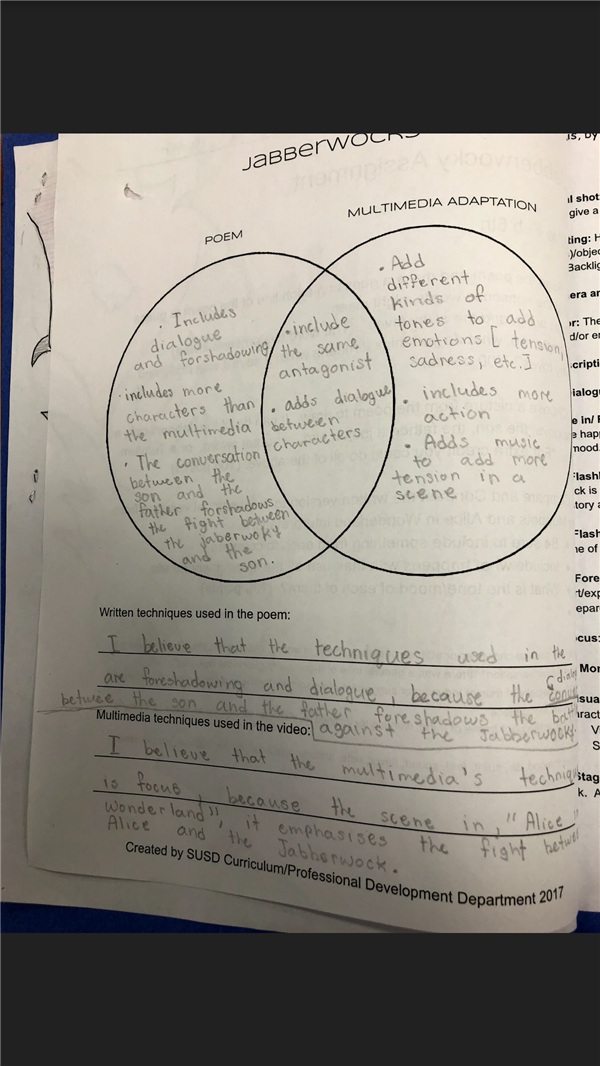 JABBERWOCK
POEM
MULTIMEDIA ADAPTATION
. Includes
dialogue
and forshadowing
.includes more
characters than
the multimedia
. The conversation
between the
son and the
father forshadows
the fight between
the jaberwoky
and the
son.
.include
the same
antagonist
. adds dialogue
between
characters
. Add
different
kinds of
tones to add
emotions [ tension,
sadress, etc.]
. includes more
action
. Adds music
to add more
tension in a
scene
Written techniques used in the poem:
I believe that the techniques used in the
are foreshadowing and dialogue, because the
betwee the son and the father foreshadows the
against the Jabberwocky.
Multimedia techniques used in the video:
I believe that the multimedia's
is focus, because the scene in, "Alice
Wonderland", it emphasises the fight
Alice and the Jabberwock.
Created by SUSD Curriculum/Professional Development Department 2017
give a
Backlig